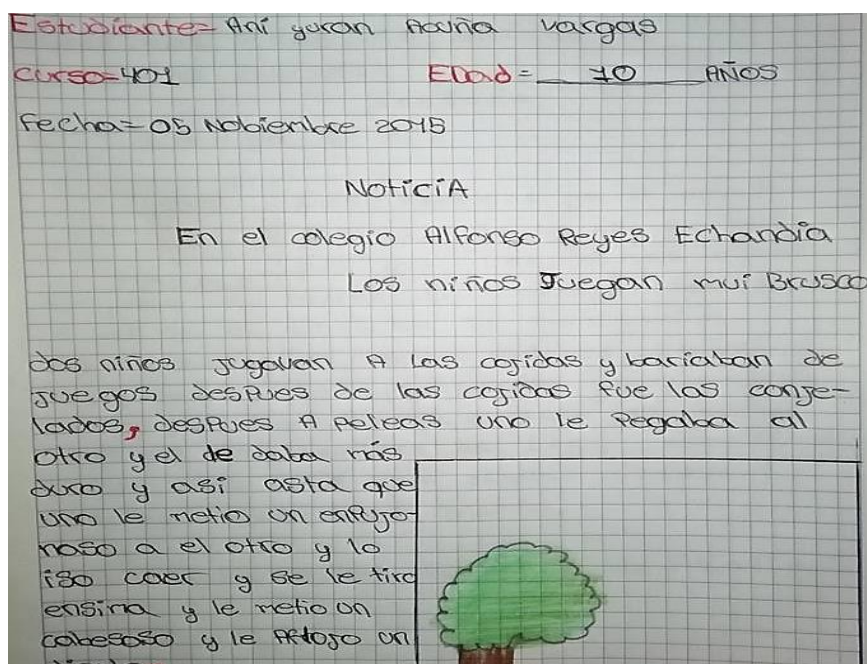 Estudiante= Ani yuran Acuña vargas
curso=401 Edad= 10 AÑOS
fecha= 05 Nobiembre 2015
NoticiA
En el colegio Alfonso Reyes Echandia
Los niños Juegan mui Brusco
dos niños jugavan A Las cojidas y bariaban de
juegos despues de las cojidas fue los conje-
lados, despues A peleas uno le Pegaba al
otro y el de daba más
duro y asi asta que
uno le metio un enpujo-
naso a el otro y lo
iso caer y se le tiro
ensima y le metio un
cabesaso y le un